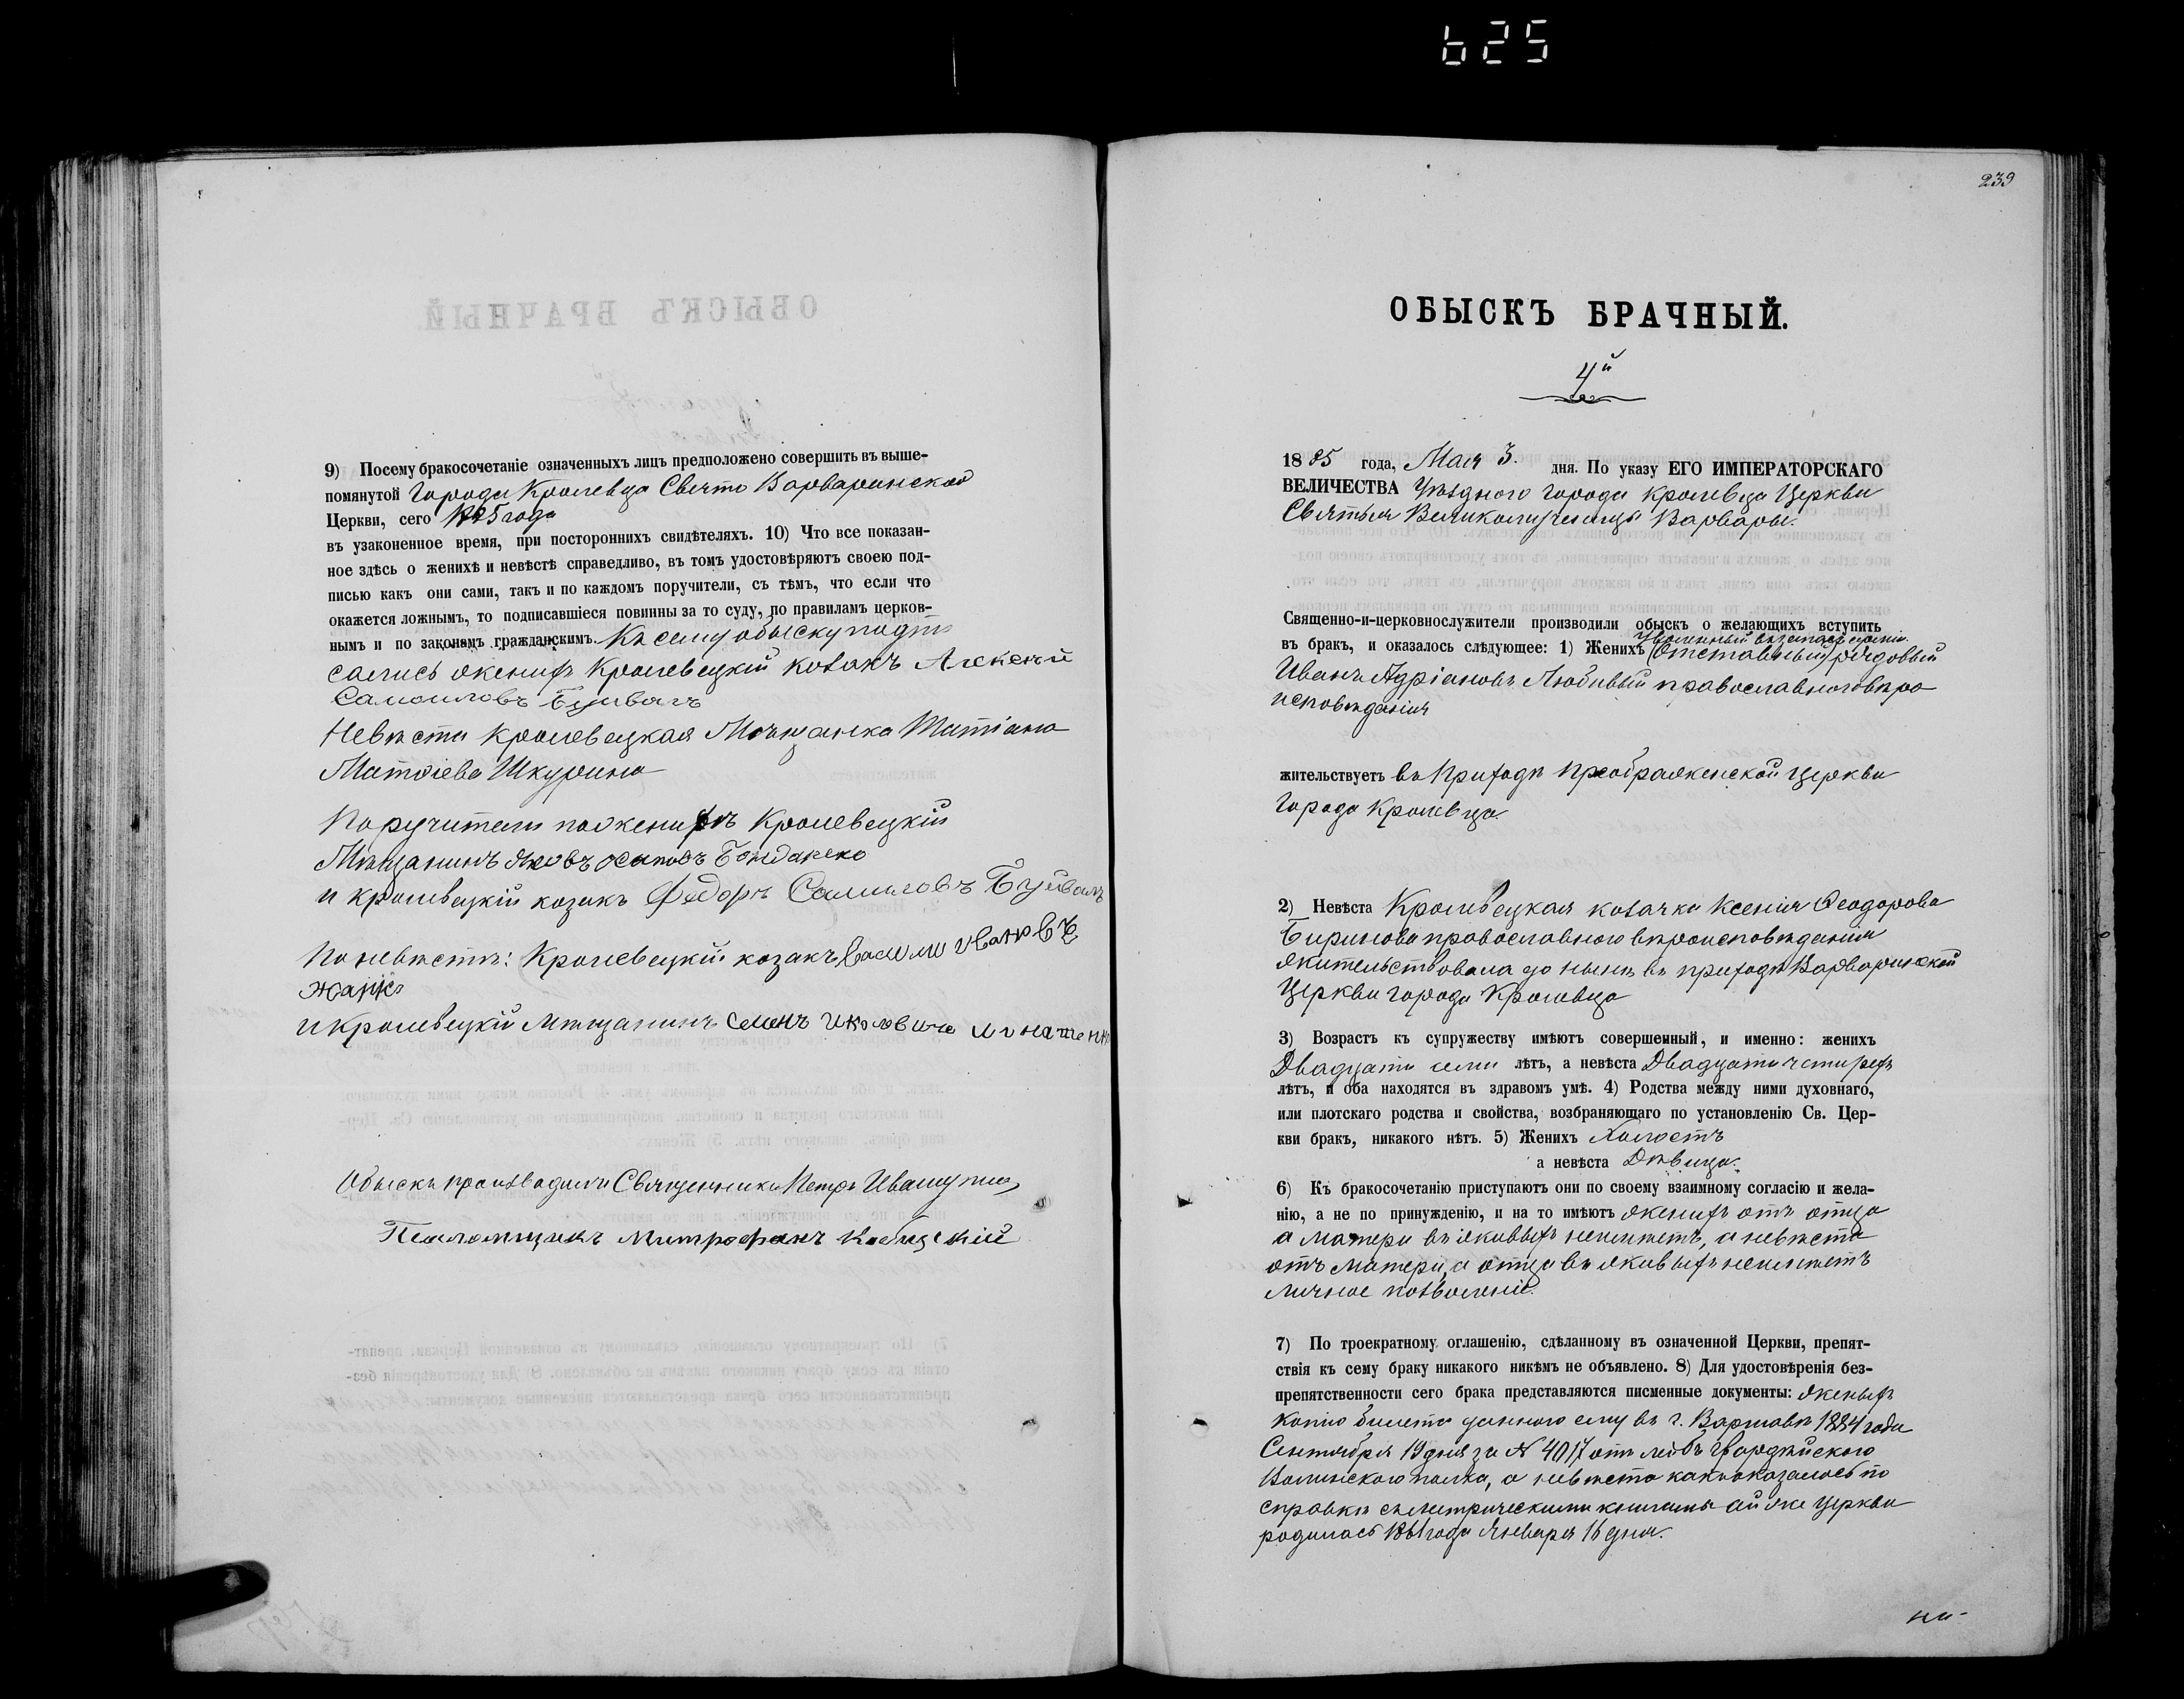 625
9) Посему бракосочетаніе означенныхъ лицъ предположено совершить въ выше-
помянутой Города Кролевца Свято Варваринской
Церкви, сего 1885 года
въ узаконенное время, при постороннихъ свидѣтеляхъ. 10) Что все показан-
ное здѣсь о женихѣ и невѣстѣ справедливо, въ томъ удостовѣряютъ своею под-
писью какъ они сами, такъ и по каждомъ поручители, съ тѣмъ, что если что
окажется ложнымъ, то подписавшіеся повинны за то суду, по правиламъ церков-
нымъ и по законамъ гражданскимъ. Къ сему обыску подпи
сались женихъ Кролевецкій козакъ Алексей
Самоиловъ Буйвалъ
Невѣста Кролевецкая Мѣщанка Татіана
Матвіева Шкурина
Поручители по женихѣ Кролевецкій
Мѣщанинъ Яковъ Осиповъ Бондаренко
и кролевецкій козакъ Федоръ Самыловъ Буйвалъ
По невѣстѣ: Кролевецкій козакъ Василий Ивановъ
и Кролевецкій Мѣщанинъ Семенъ
Обыскъ производили Священникъ Петръ
Псаломщикъ Митрофанъ
239
ОБЫСКЪ БРАЧНЫЙ.
4й
1885 года, Мая 3. дня. По указу ЕГО ИМПЕРАТОРСКАГО
ВЕЛИЧЕСТВА Уѣзднаго города Кролевца Церкви
Святыя Великомученицы Варвары.
Священно-и-церковнослужители производили обыскъ о желающихъ вступить
уволенный въ запасъ арміи
въ бракъ, и оказалось слѣдующее: 1) Женихъ (Отставный) рядовый
Иванъ Адріановъ Любивый православнаго вѣро
исповѣданія
жительствуетъ въ приходѣ Преображенской церкви
города Кролевца.
2) Невѣста Кролевецкая козачка Ксенія Феодорова
Бирикова православнаго вѣроисповѣданія
жительствовала до нынѣ въ приходѣ Варваринской
Церкви города Кролевца
3) Возрастъ къ супружеству имѣютъ совершенный, и именно: женихъ
Двадцати семи лѣтъ, а невѣста Двадцати четырехъ
лѣтъ, и оба находятся въ здравомъ умѣ. 4) Родства между ними духовнаго,
или плотскаго родства и свойства, возбраняющаго по установленію Св. Цер-
кви бракъ, никакого нѣтъ. 5) Женихъ Холостъ
а невѣста Дѣвица.
6) Къ бракосочетанію приступаютъ они по своему взаимному согласію и жела-
нію, а не по принужденію, и на то имѣютъ женихъ отъ отца
а матери въ живыхъ неимѣетъ, а невѣста
отъ матери, а отца въ живыхъ неимѣетъ
личное позволеніе.
7) По троекратному оглашенію, сдѣланному въ означенной Церкви, препят-
ствія къ сему браку никакого никѣмъ не объявлено. 8) Для удостовѣренія без-
препятственности сего брака представляются писменные документы: женихъ
копію билета даннаго ему въ г. Варшавѣ 1884 года
Сентября 19 дня за № 4017 отъ лейбъ гвардейскаго
Волынскаго полка, а невѣста какъ оказалось по
справкѣ съ метрическими книгами сей же церкви
родилась 1861 года Января 16 дня.